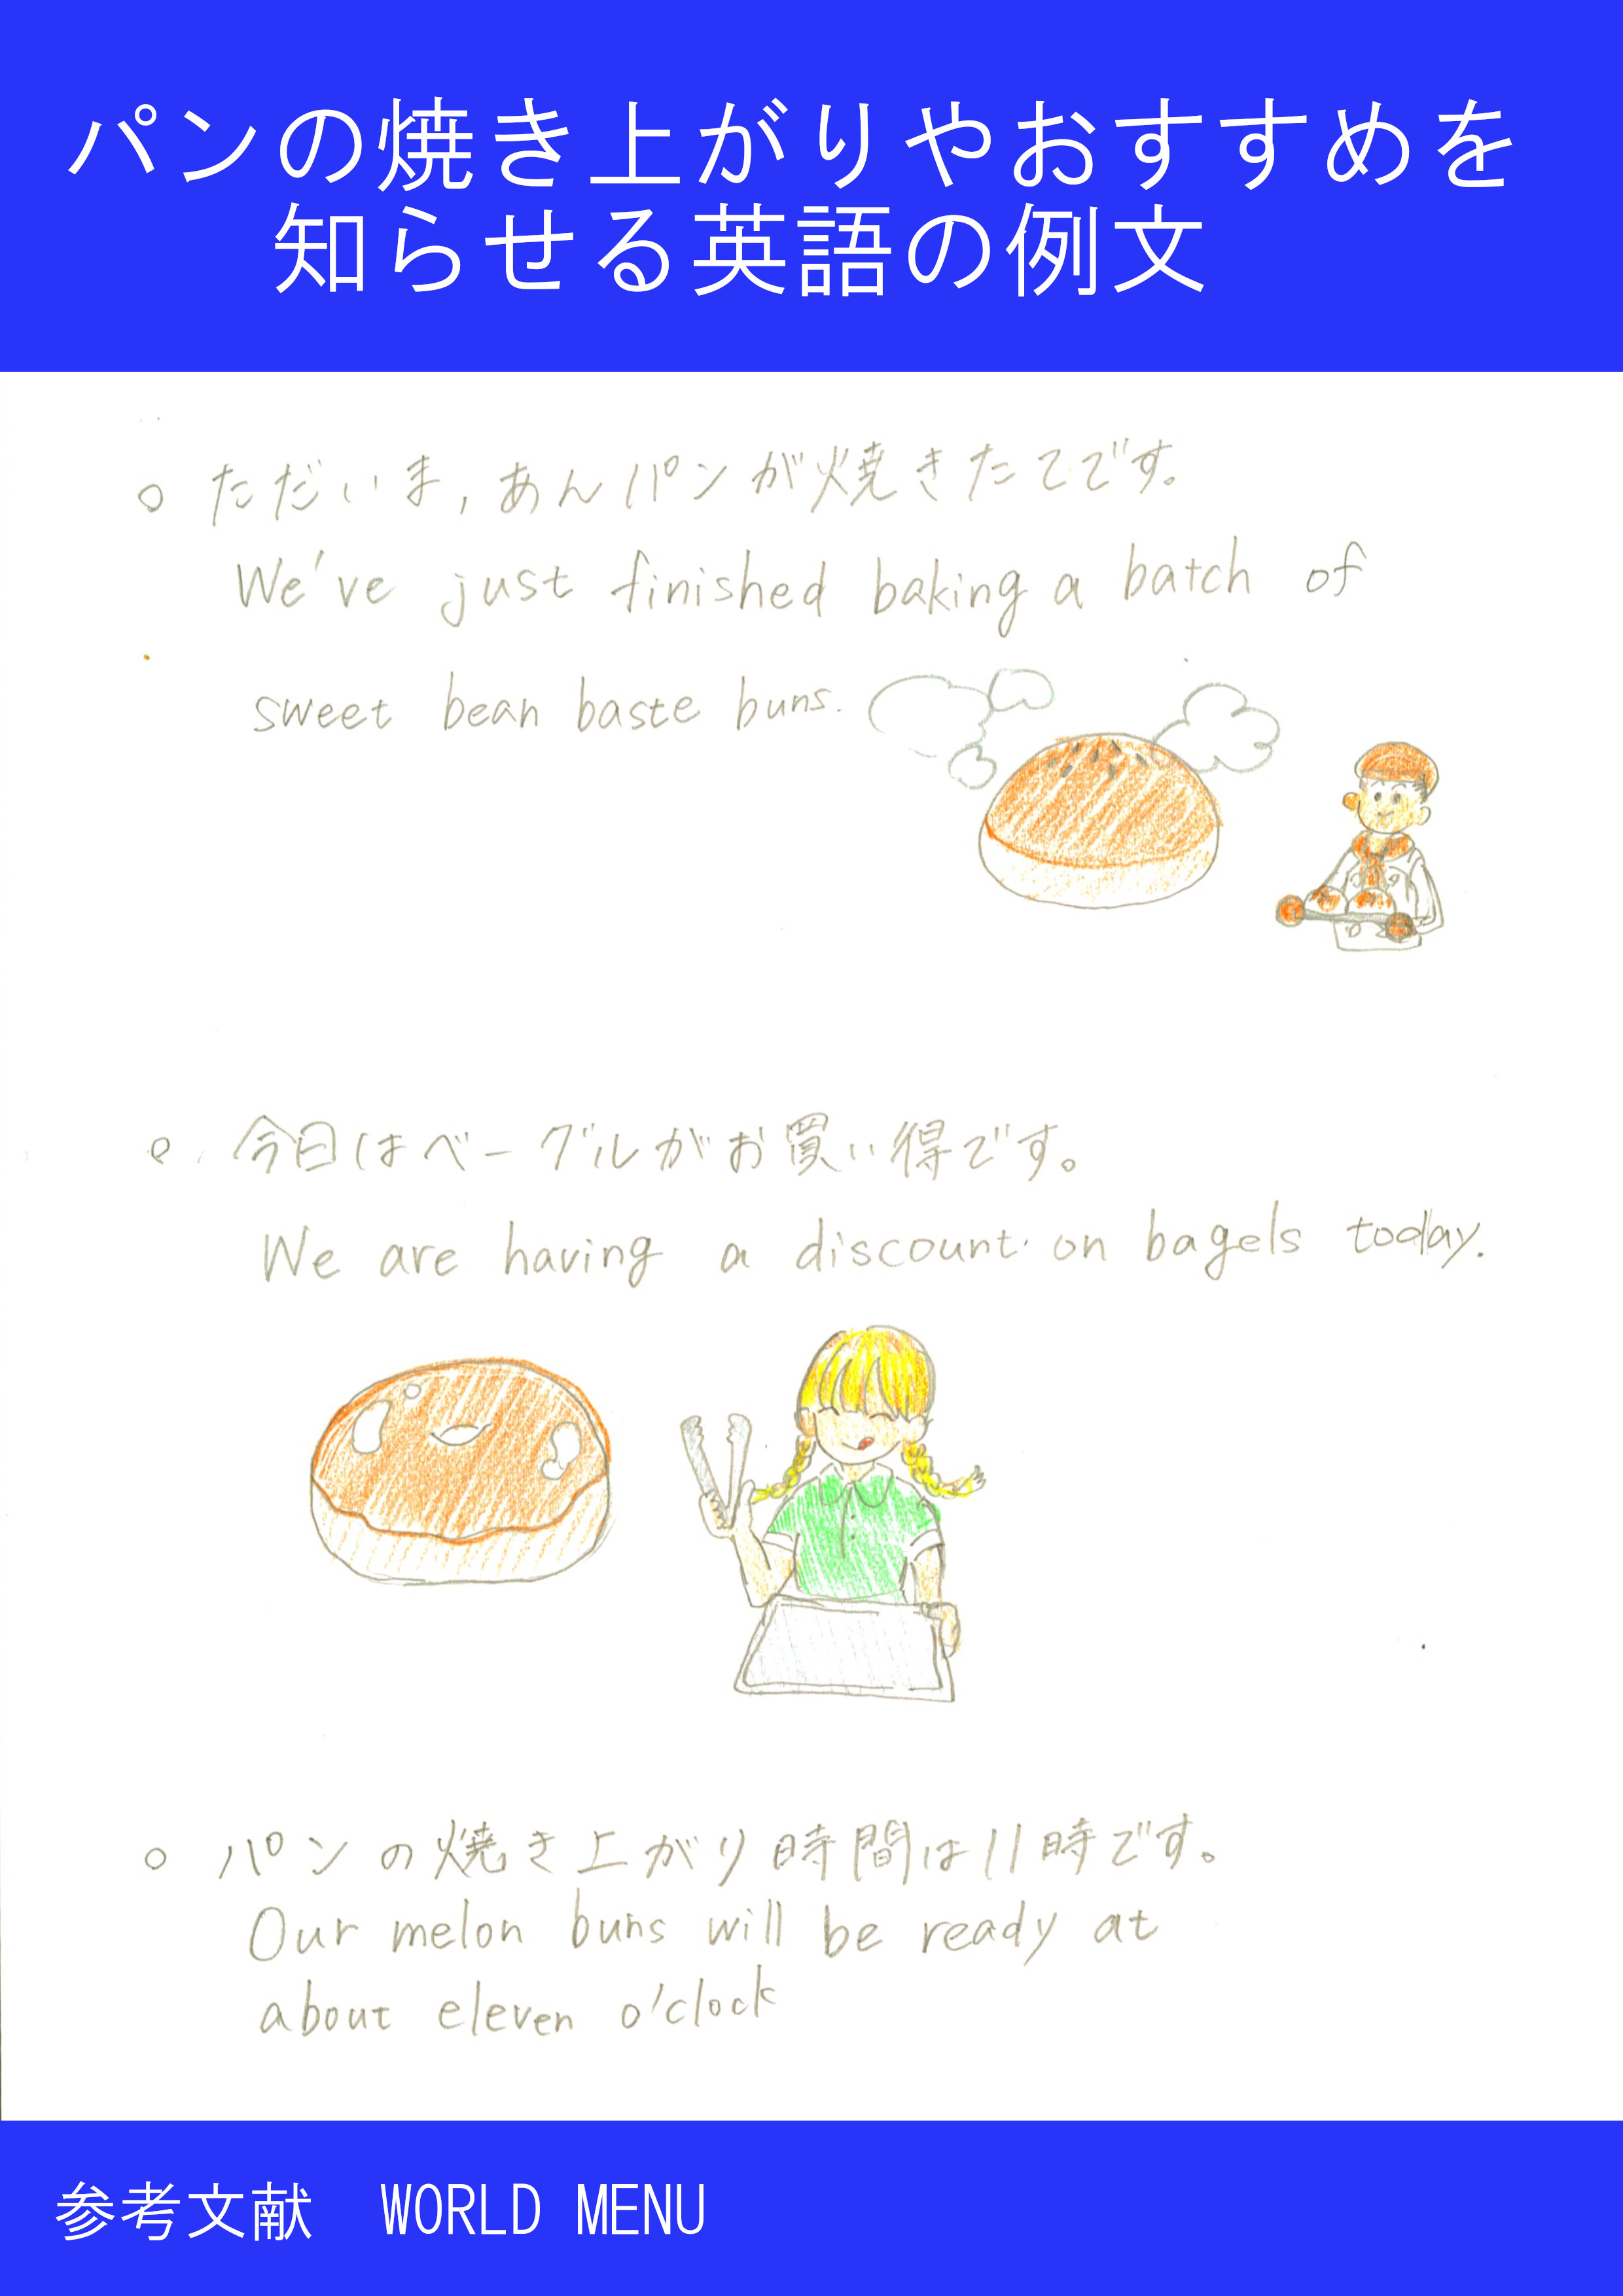 パンの焼き上がりやおすすめを
知らせる英語の例文
○ ただいま,あんパンが焼きたてです。
We've just finished baking a batch of
sweet bean baste buns.
○ 今日はベーグルがお買い得です。
We are having a discount on bagels today.
○ パンの焼き上がり時間は11時です。
Our melon buns will be ready at
about eleven o'clock
参考文献 WORLD MENU